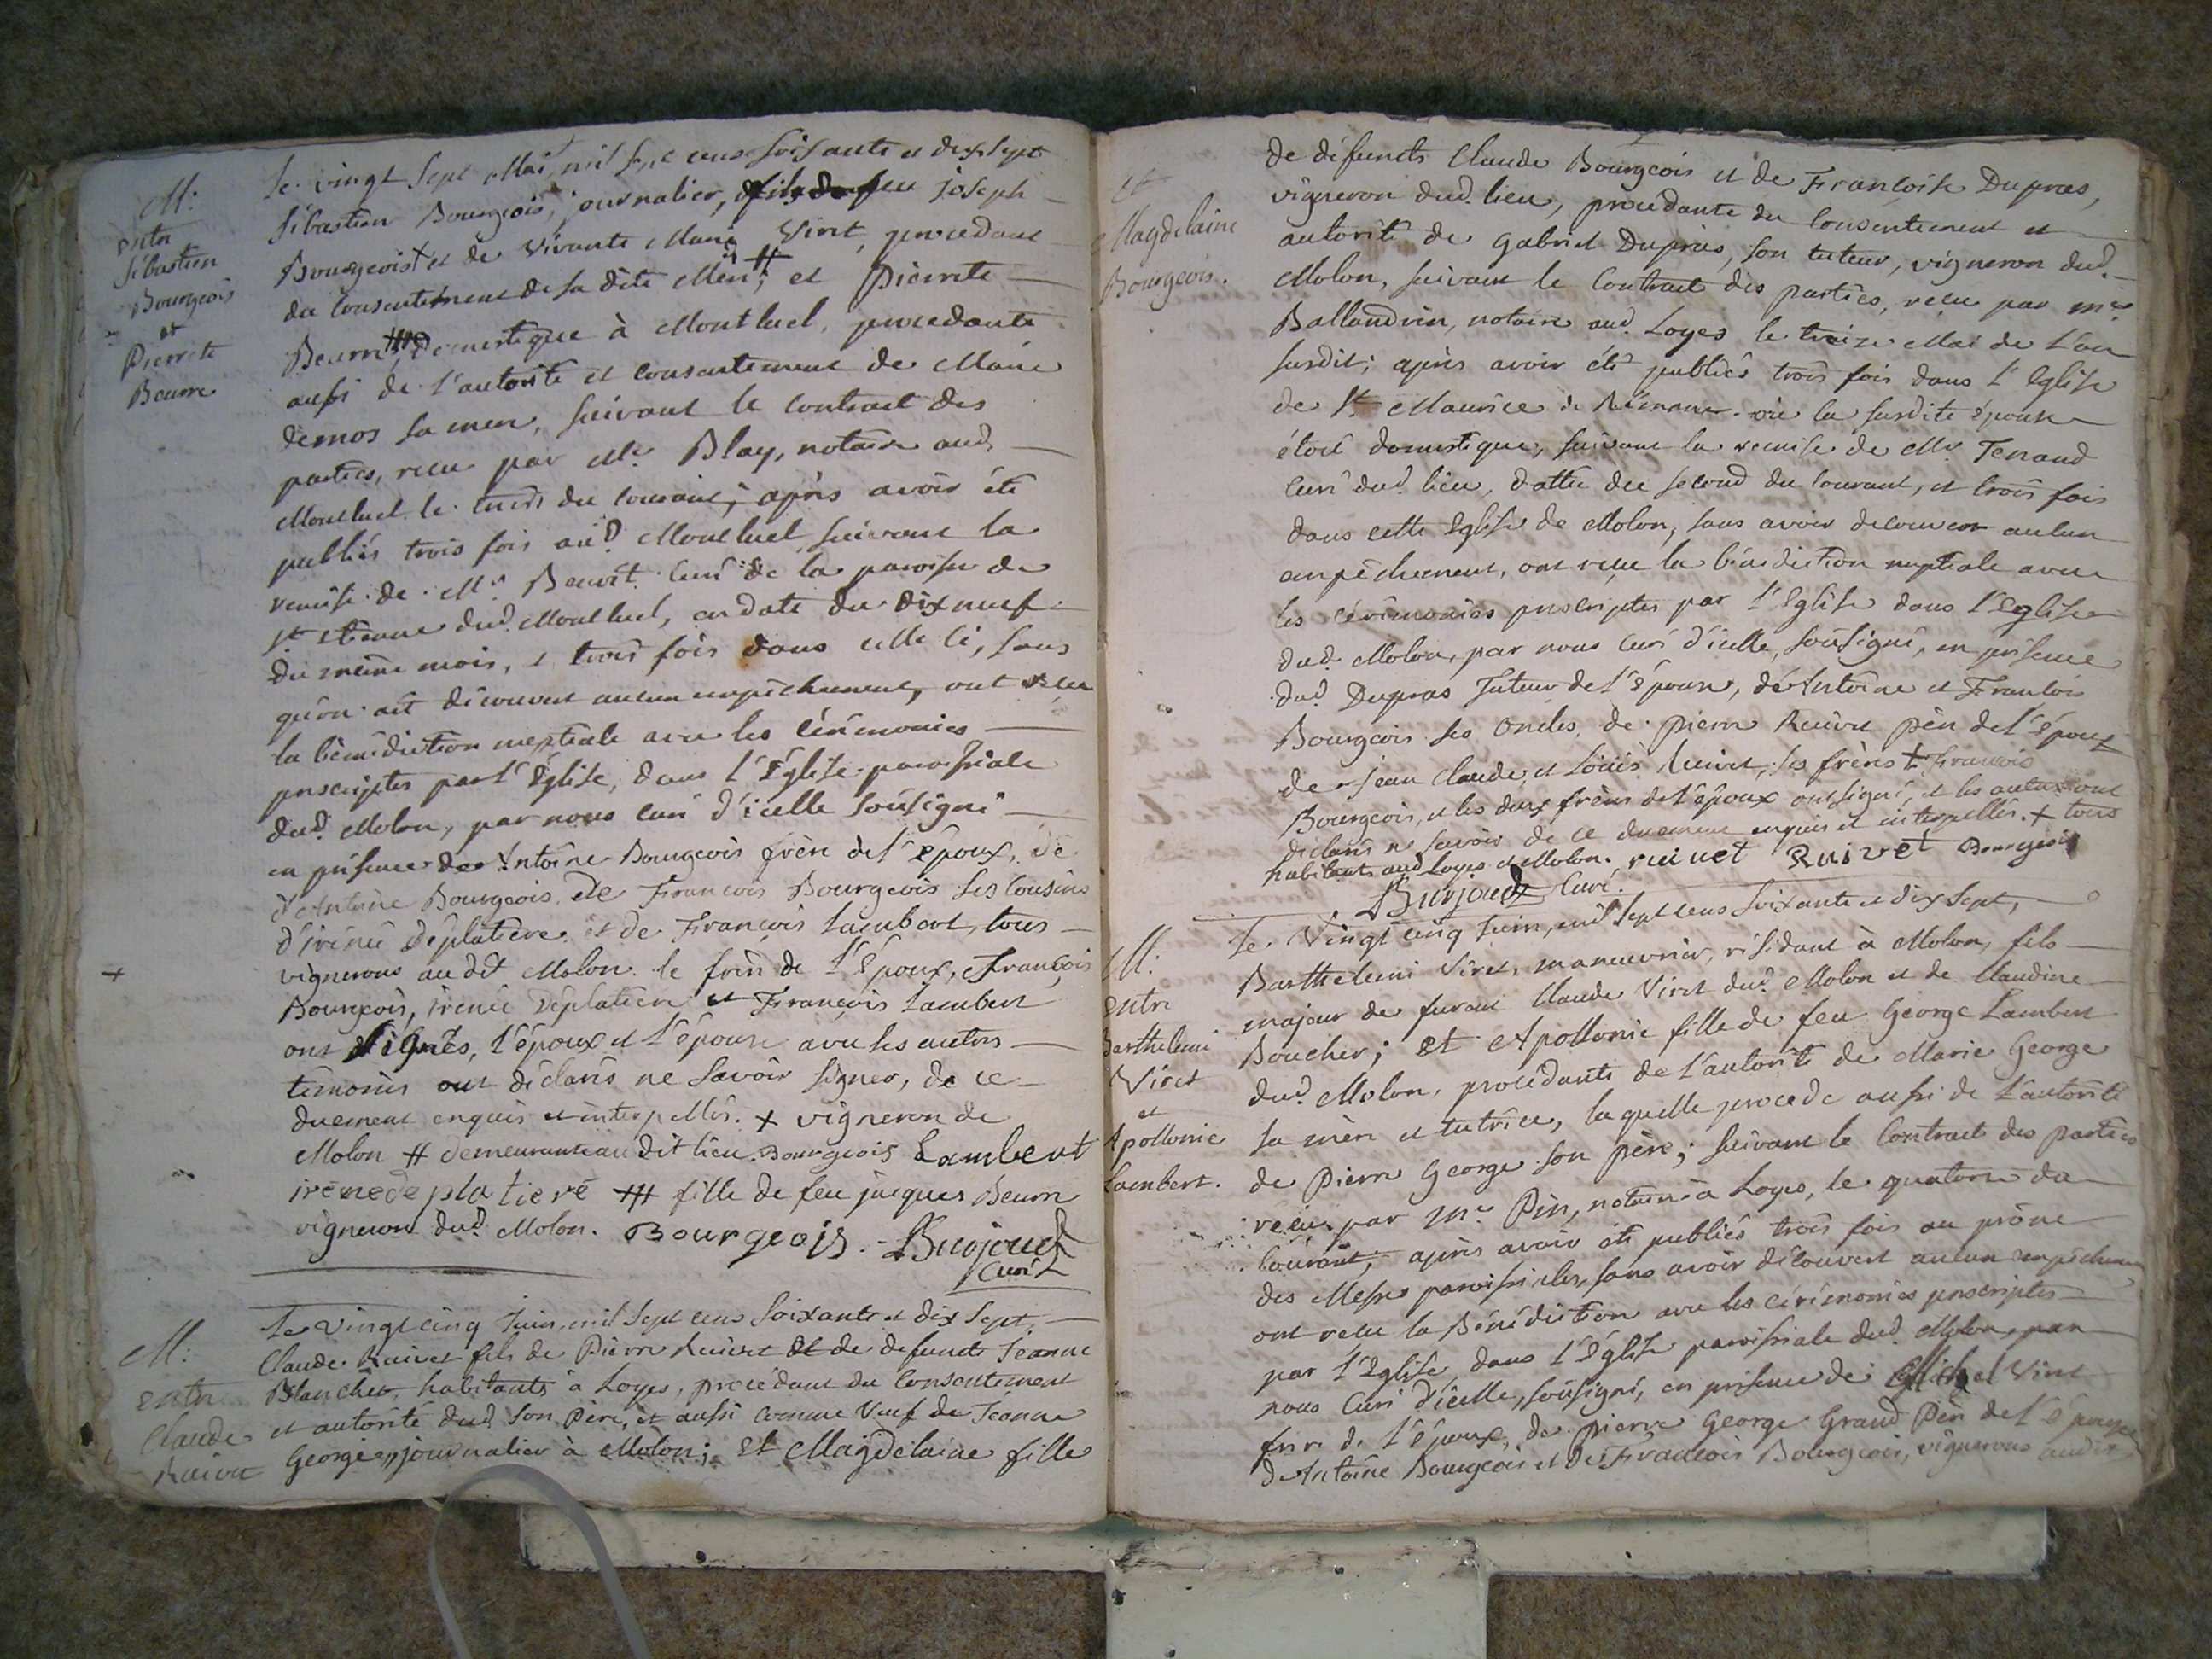 M:
entre
Sébastien
Bourgeois
et
Pierrete
Beurre
Le vingt sept Mai, mil sept cens soixante et dix sept
Sébastien Bourgeois, journalier, fils de feu joseph
Bourgeois + et de vivante Marie Viret, procedant
du consentement de sa dite Mere, # et Pierrete
Beurre ### domestique à Montluel, procedante
aussi de l'autorité et consentement de Marie
demos sa mere, suivant le contract des
parties, recu par Me. Blay, notaire aud.
Montluel le du courant; après avoir été
publiés trois fois aud. Montluel, suivant la
remise de Mr. Benoit Curé de la paroisse de
St. Etienne dud. Montluel, en date du dix neuf
du même mois, et trois fois dans celle ci, sans
qu'on ait découvert aucun empêchement, ont recu
la bénédiction nuptiale avec les cérémonies
prescriptes par l'Eglise, dans l'Eglise paroissiale
dud. Molon, par nous curé d'icelle soûsigné
en présence de Antoine Bourgeois frère de l'Epoux, de
d'Antoine Bourgeois, de Francois Bourgeois ses Cousins
d'irénée Déplatiere et de François Lambert, tous
vignerons au dit Molon. le frère de l'Epoux, François
Bourgeois, irénée Déplatiere et François Lambert
ont signés, l'époux et l'épouse avec les autres
témoins ont déclarés ne savoir signer, de ce
duement enquis et interpellés. + vigneron de
Molon # demeurante au dit lieu. Bourgeois Lambert
irénée déplatieré ### fille de feu jacques Beurre
vigneron dud. Molon. Bourgeois. Burjoud
Curé
M:
entre
Claude
Ruivet
Le vingt cinq Juin, mil sept cens soixante et dix sept,
Claude Ruivet fils de Pierre Ruivet et de defuncte Jeanne
Blanchet, habitants à Loyes, procédant du consentement
et autorité dud. son Père, et aussi comme Veuf de Jeanne
George, journalier à Molon; Et Magdelaine fille
et
Magdelaine
Bourgeois.
de défuncts Claude Bourgeois et de Françoise Dupras,
vigneron dud. lieu, procedante du consentement et
autorité de Gabriel Dupras, son tuteur, vigneron dud.
Molon, suivant le Contract des parties, reçu par me.
Ballandrin, notaire aud. Loyes le treize Mai de l'an
susdit; après avoir été publiés trois fois dans l'Eglise
de St. Maurice de Rémens où la susdite épouse
étoit domestique, suivant la remise de Mr. Tenand
Curé dud. lieu, dattée du second du courant, et trois fois
dans cette Eglise de Molon, sans avoir découvert aucun
empêchement, ont reçu la bénédiction nuptiale avec
les cérémonies prescriptes par l'Eglise dans l'Eglise
dud. Molon, par nous Curé d'icelle, soûsigné, en présence
dud. Dupras Tuteur de l'épouse, de Antoine et François
Bourgeois ses Oncles, de Pierre Ruivet père de l'Epoux
de Jean Claude et Loüis Ruivet, ses frères + François
Bourgeois, et les deux frères de l'époux ont signé, et les autres ont
déclarés ne savoir de ce duement enquis et interpellés. + tous
habitants aud. Loyes et Molon. ruivet Ruivet Bourgeois
Burjoud Curé.
M:
entre
Barthelemi
Viret
et
Apollonie
Lambert.
Le Vingt cinq Juin, mil sept cens soixante et dix sept,
Barthelemi Viret, manœuvrier, résidant à Molon, fils
majeur de furent Claude Viret dud. Molon et de Claudine
Boucher; et Apollonie fille de feu George Lambert
dud. Molon, procédante de l'autorité de Marie George
sa mère et tutrice, laquelle procede aussi de l'autorité
de Pierre George son père; suivant le Contract des parties
reçu par Me. Pin, notaire à Loyes, le quatorze du
Courant; après avoir été publiés trois fois au prône
des Messes paroissiales, sans avoir découvert aucun empêchement
ont reçu la Bénédiction avec les cérémonies prescriptes
par l'Eglise, dans l'Eglise paroissiale dud. Molon, par
nous Curé d'icelle, soûsigné, en présence de Michel Viret
frere de l'Epoux, de Pierre George Grand Père de l'épouse
de Antoine Bourgeois et de François Bourgeois, vignerons audit